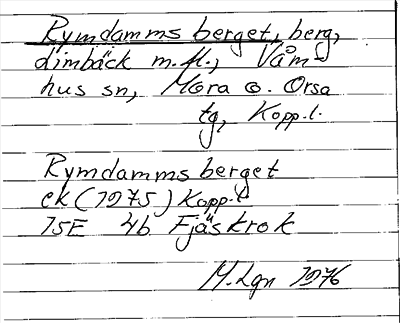 Rymdamms berget, berg,
Limbäck m.fl., Våm-
hus sn, Mora o. Orsa
tg, Kopp.l.
Rymdamms berget
ek (1975) Kopp.l
15E 4b Fjäskrok
M.Lgn 1976